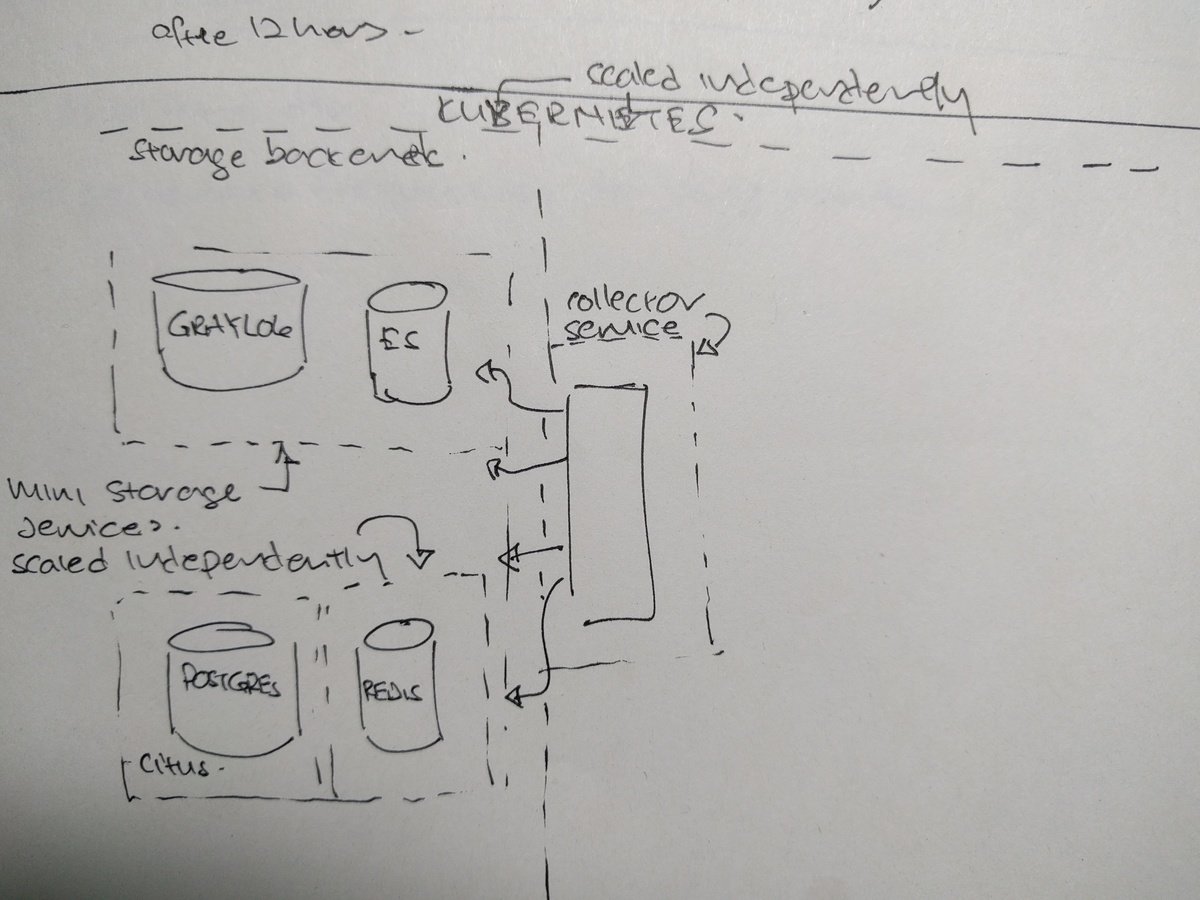 after 12 hours -
scaled independentenly
KUBERNETES.
storage backends.
collector
service
GRAYLOG
ES
mini storage
services.
scaled independently
POSTGRES
REDIS
Citus.